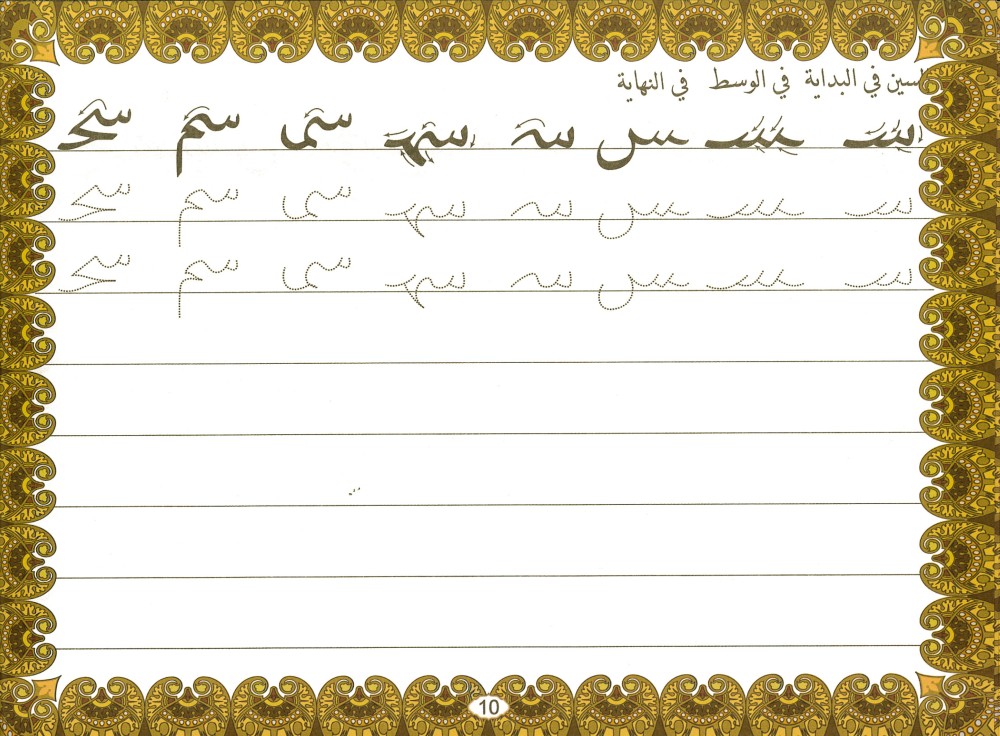 لسين في البداية في الوسط في النهاية
سـ ـسـ س سه سهـ سى سم سحـ
سـ ـسـ س سه سهـ سى سم سحـ
سـ ـسـ س سه سهـ سى سم سحـ
10